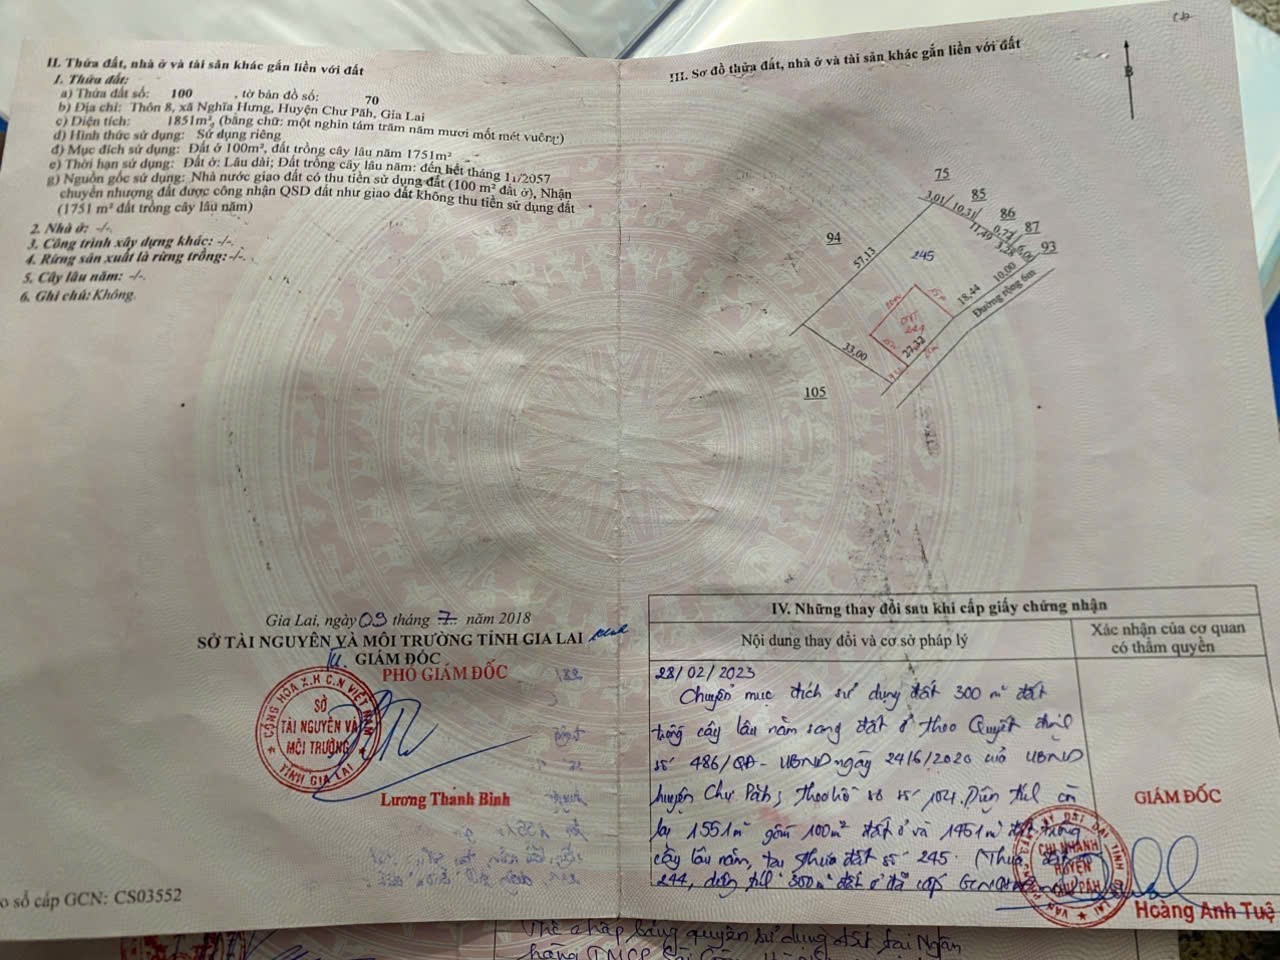 II. Thửa đất, nhà ở và tài sản khác gắn liền với đất
1. Thửa đất:
a) Thửa đất số: 100 , tờ bản đồ số: 70
b) Địa chỉ: Thôn 8, xã Nghĩa Hưng, Huyện Chư Păh, Gia Lai
c) Diện tích: 1851m², (bằng chữ: một nghìn tám trăm năm mươi mốt mét vuông;)
d) Hình thức sử dụng: Sử dụng riêng
đ) Mục đích sử dụng: Đất ở 100m², đất trồng cây lâu năm 1751m²
e) Thời hạn sử dụng: Đất ở: Lâu dài; Đất trồng cây lâu năm: đến hết tháng 11/2057
g) Nguồn gốc sử dụng: Nhà nước giao đất có thu tiền sử dụng đất (100 m² đất ở), Nhận
chuyển nhượng đất được công nhận QSD đất như giao đất không thu tiền sử dụng đất
(1751 m² đất trồng cây lâu năm)
2. Nhà ở: -/-.
3. Công trình xây dựng khác: -/-.
4. Rừng sản xuất là rừng trồng: -/-.
5. Cây lâu năm: -/-.
6. Ghi chú: Không.
Gia Lai, ngày 09 tháng 7 năm 2018
SỞ TÀI NGUYÊN VÀ MÔI TRƯỜNG TỈNH GIA LAI
GIÁM ĐỐC
PHÓ GIÁM ĐỐC
CỘNG HÒA X.H C.N VIỆT NAM
SỞ
TÀI NGUYÊN VÀ
MÔI TRƯỜNG
TỈNH GIA LAI
Lương Thanh Bình
o sổ cấp GCN: CS03552
III. Sơ đồ thửa đất, nhà ở và tài sản khác gắn liền với đất
B
75
85
86
87
93
94
105
3,01
10,31
11,40
0,77
3,28
6,06
10,00
18,44
27,32
33,00
57,13
245
244
Đường rộng 6m
IV. Những thay đổi sau khi cấp giấy chứng nhận
Nội dung thay đổi và cơ sở pháp lý
Xác nhận của cơ quan
có thẩm quyền
28/02/2023
Chuyển mục đích sử dụng đất 300 m² đất
trồng cây lâu năm sang đất ở theo Quyết định
số 486/QĐ-UBND ngày 24/6/2020 của UBND
huyện Chư Păh; theo hồ sơ số 104. Diện tích còn
lại 1551m² gồm 100m² đất ở và 1451m² đất trồng
cây lâu năm, tại thửa đất số 245. (Thửa đất
244, diện tích 300m² đất ở đã cấp
GIÁM ĐỐC
CHI NHÁNH
HUYỆN
CHƯ PĂH
Hoàng Anh Tuệ
Thế chấp bằng quyền sử dụng đất tại Ngân
hàng TMCP Sài